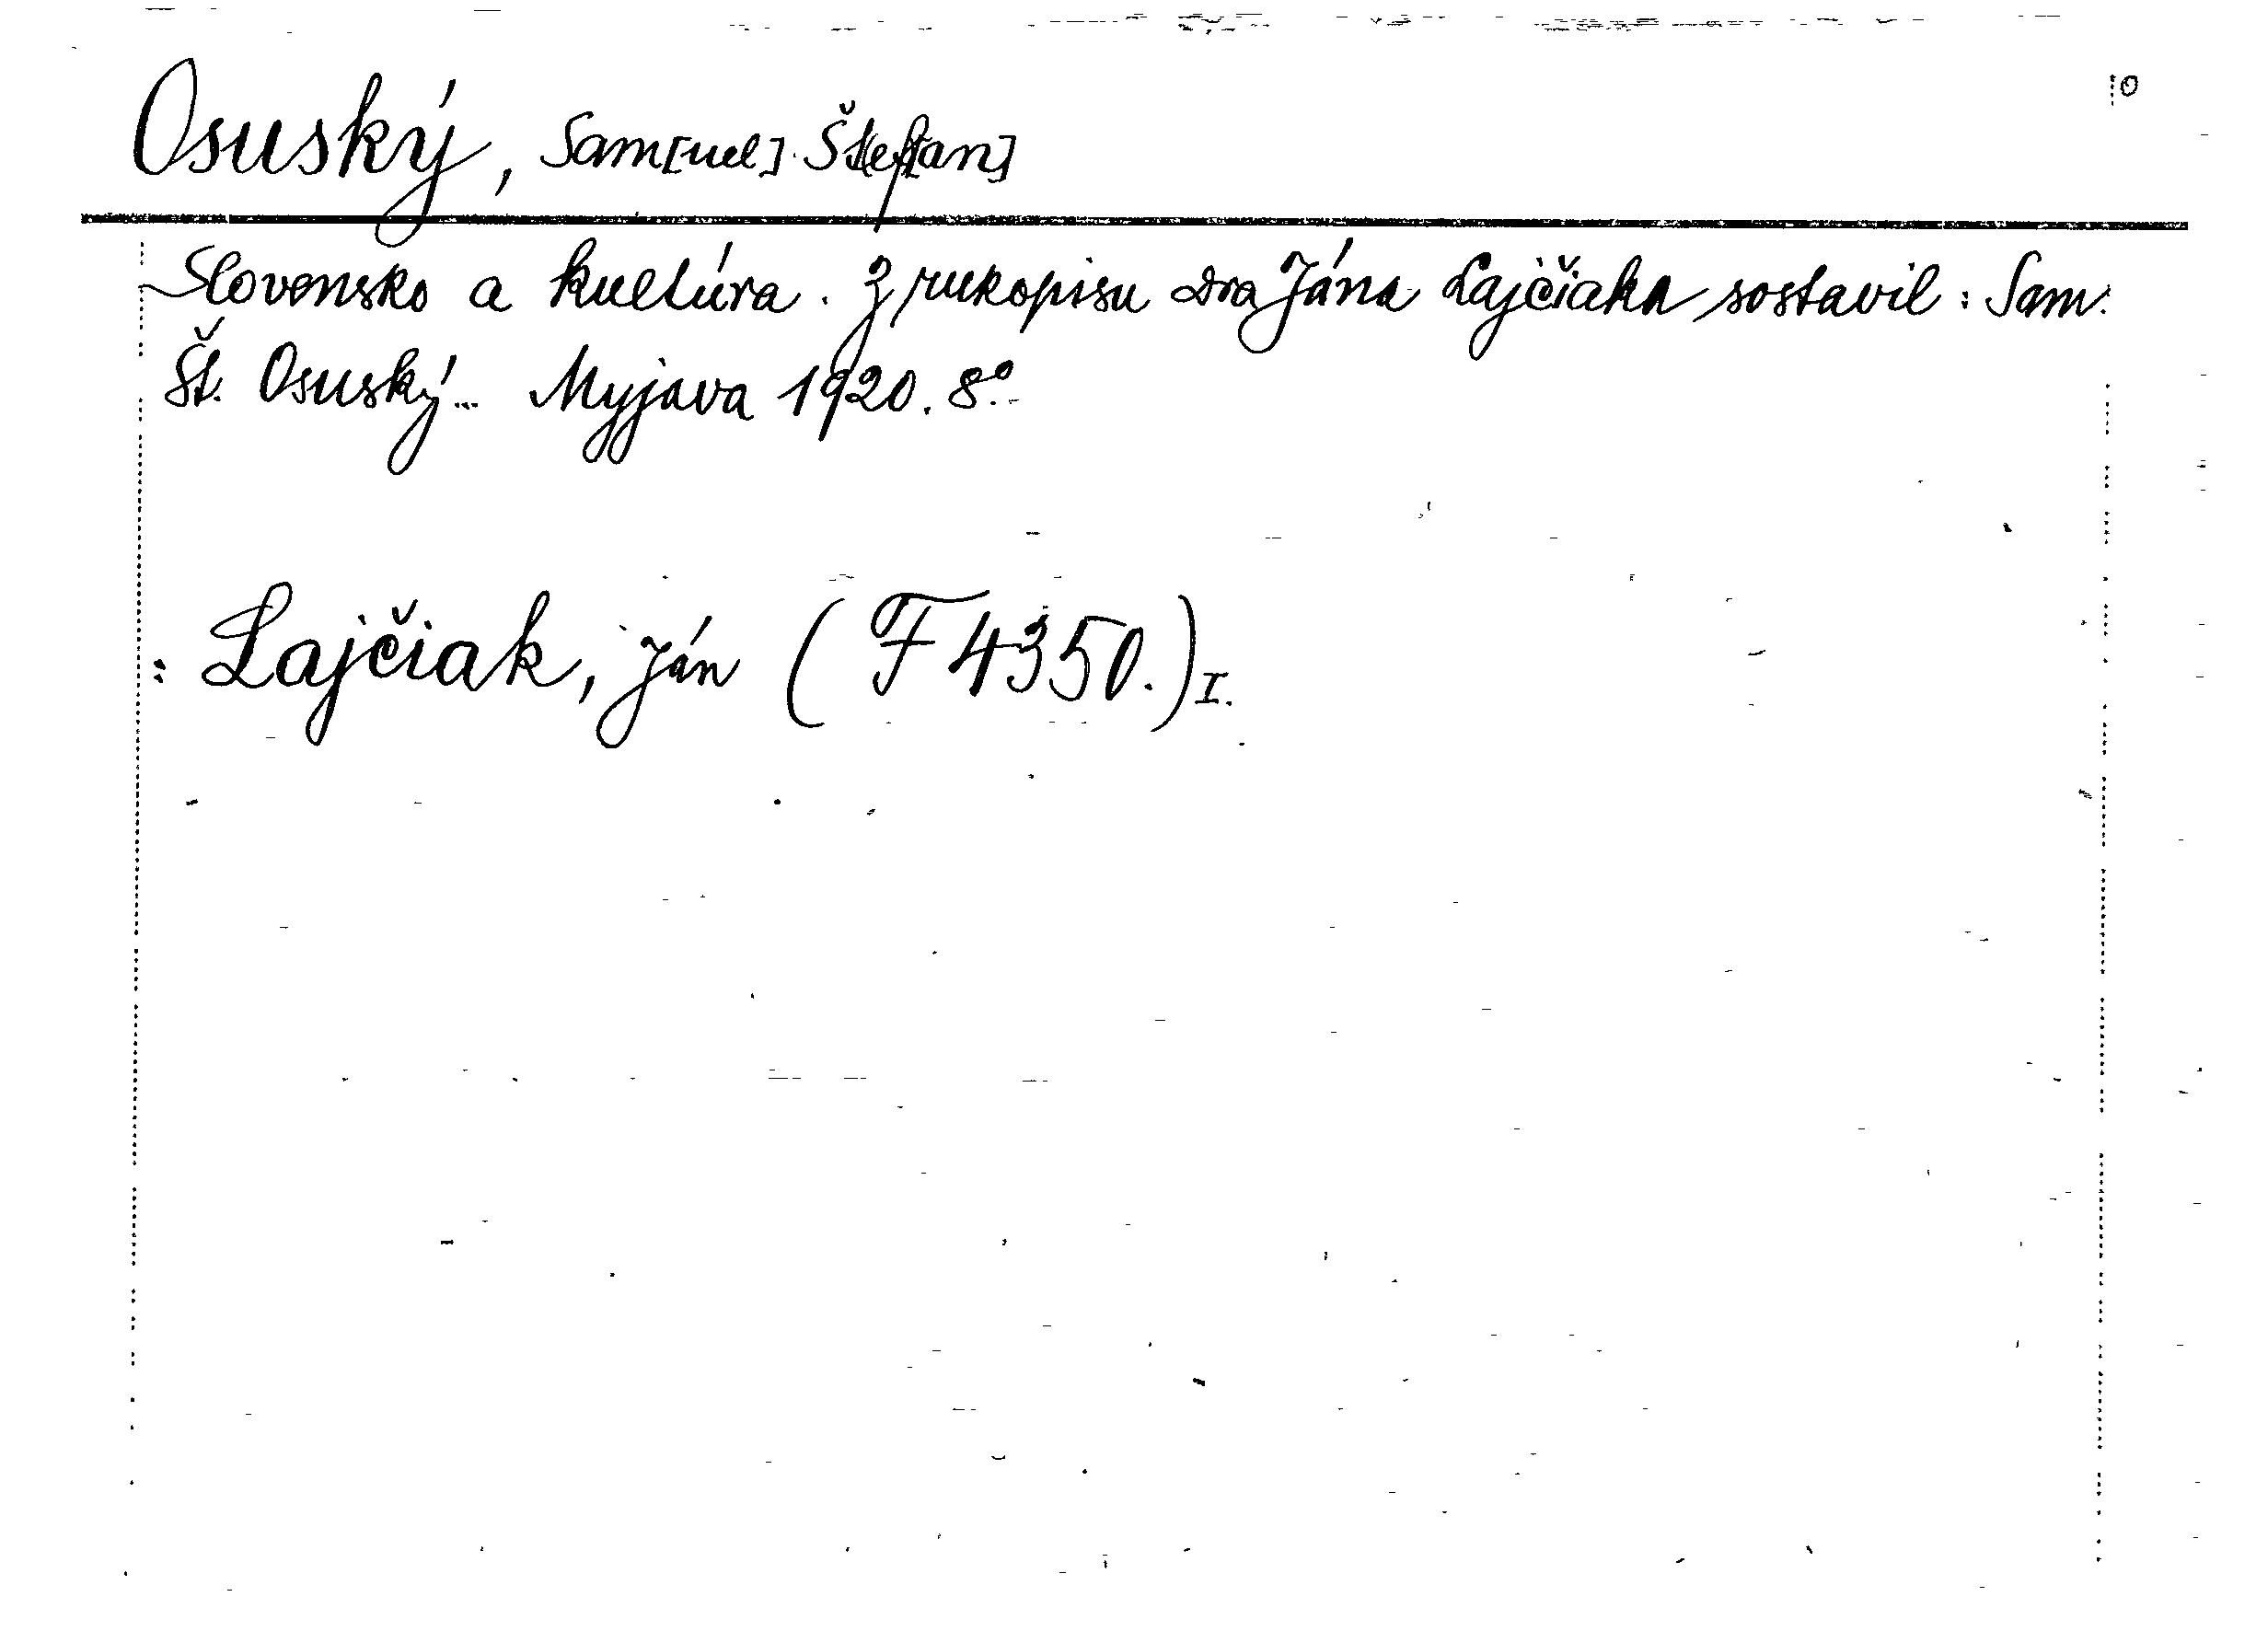 Osuský, Sam[uel] Štef[an]
Slovensko a kultúra. Z rukopisu dra Jána Lajčiaka sostavil: Sam.
Št. Osuský... Myjava 1920. 8°.
: Lajčiak, Ján (F 4350.) I.